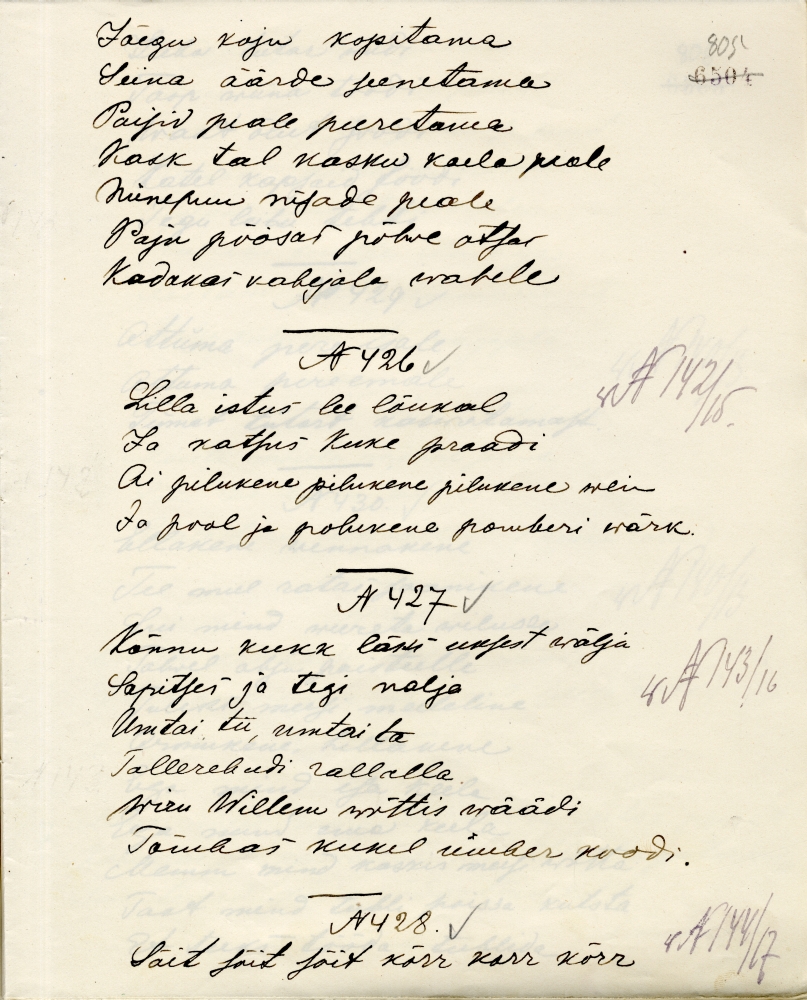 Jäegu koju kopitama
805
6504
Seina äärde seenetama
Paisid peale peeretama
Kask tal kasku kaela peale
Niinepuu nisade peale
Paju põõsas põlwe otsas
Kadakas kahejala wahele
№ 426 ✓
№ 142/15.
Lilla istus lee lõukal
Ja katsus kuke praadi
Ai pilukene pilukene pilukene wein
Ja pool ja polukene pomberi wärk.
№ 427 ✓
Kõnnu kukk läks uksest wälja
№ 143/16
Sapitses ja tegi nalja
Umtai tii, umtai ta
Tallerehudi rallalla
Wiru Willem wõttis wäädi
Tõmbas kukel ümber koodi.
№ 428. ✓
№ 144/17
Sõit sõit sõit kõrr korr kõrr